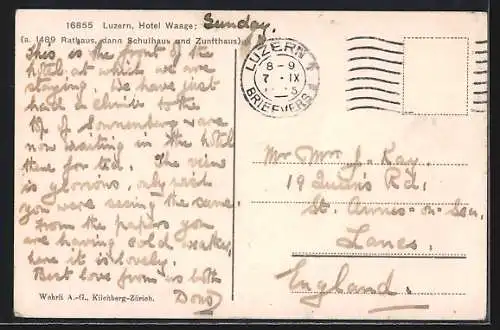 16855 Luzern, Hotel Waage;
(a. 1489 Rathaus, dann Schulhaus und Zunfthaus)
Sunday.
This is the front of the
hotel at which we are
staying. We have just
had a climb to the
Sonnenberg & are
now waiting in the hotel
there for tea. The view
is glorious, only wish
you were seeing the same.
From the papers you
are having cold weather,
here it is lovely.
Best love from us both
Wehrli A.-G., Kilchberg-Zürich.
LUZERN 1
8-9
7 IX
BRIEFVERS
Mr Mrs J. Kay.
19 Rd.
St. Annes-on-Sea,
Lancs.
England.